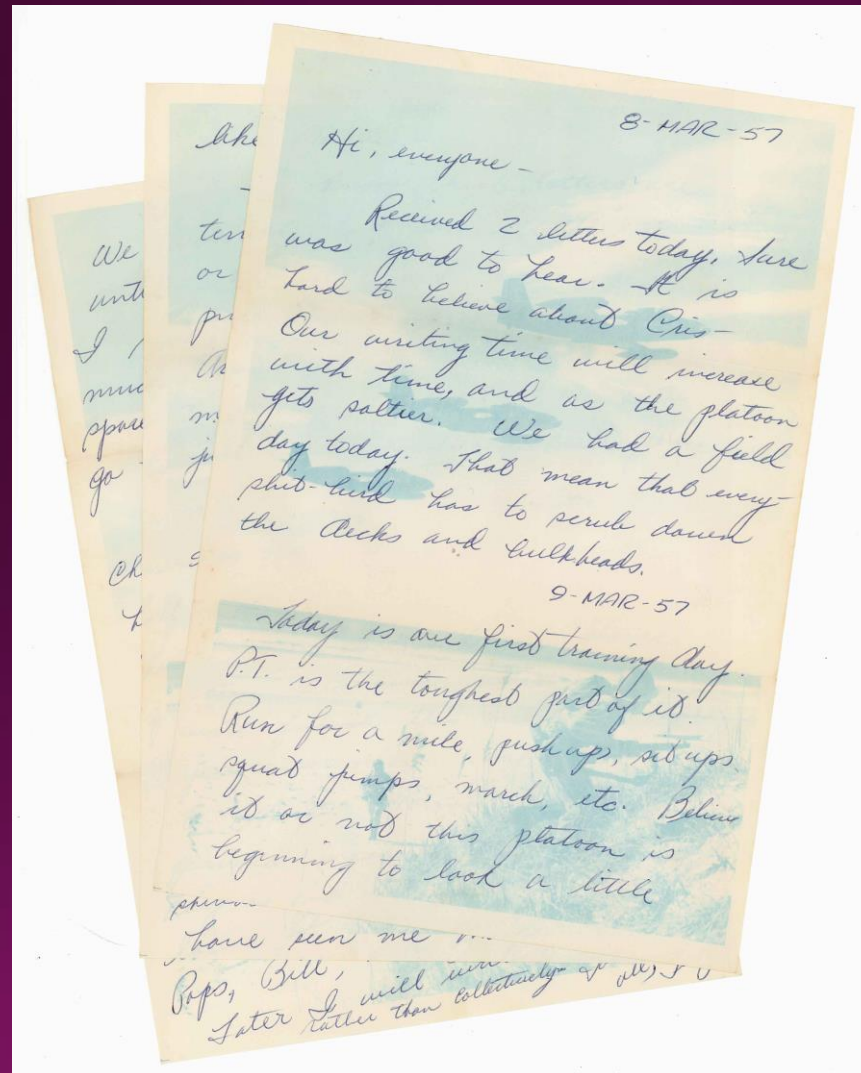 8-MAR-57
Hi, everyone -
Received 2 letters today. Sure
was good to hear. It is
hard to believe about Cris-
Our writing time will increase
with time, and as the platoon
gets saltier. We had a field
day today. That mean that every-
shit-bird has to scrub down
the decks and bulkheads.
9-MAR-57
Today is our first training day.
P.T. is the toughest part of it.
Run for a mile, push ups, sit ups
squat jumps, march, etc. Believe
it or not this platoon is
beginning to look a little
like
or
We
I
go
have seen me
Pops, Bill,
Later I will
rather than collectively